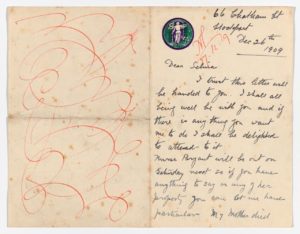 66 Chatham St
Stockport
Dec 26th
1909
Dear Selina
I trust this letter will
be handed to you. I shall all
being well be with you and if
there is anything you want
me to do I shall be delighted
to attend to it
Nurse Bryant will be out on
Saturday next so if you have
anything to say in any of her
property you can let me have
particulars My Mother died